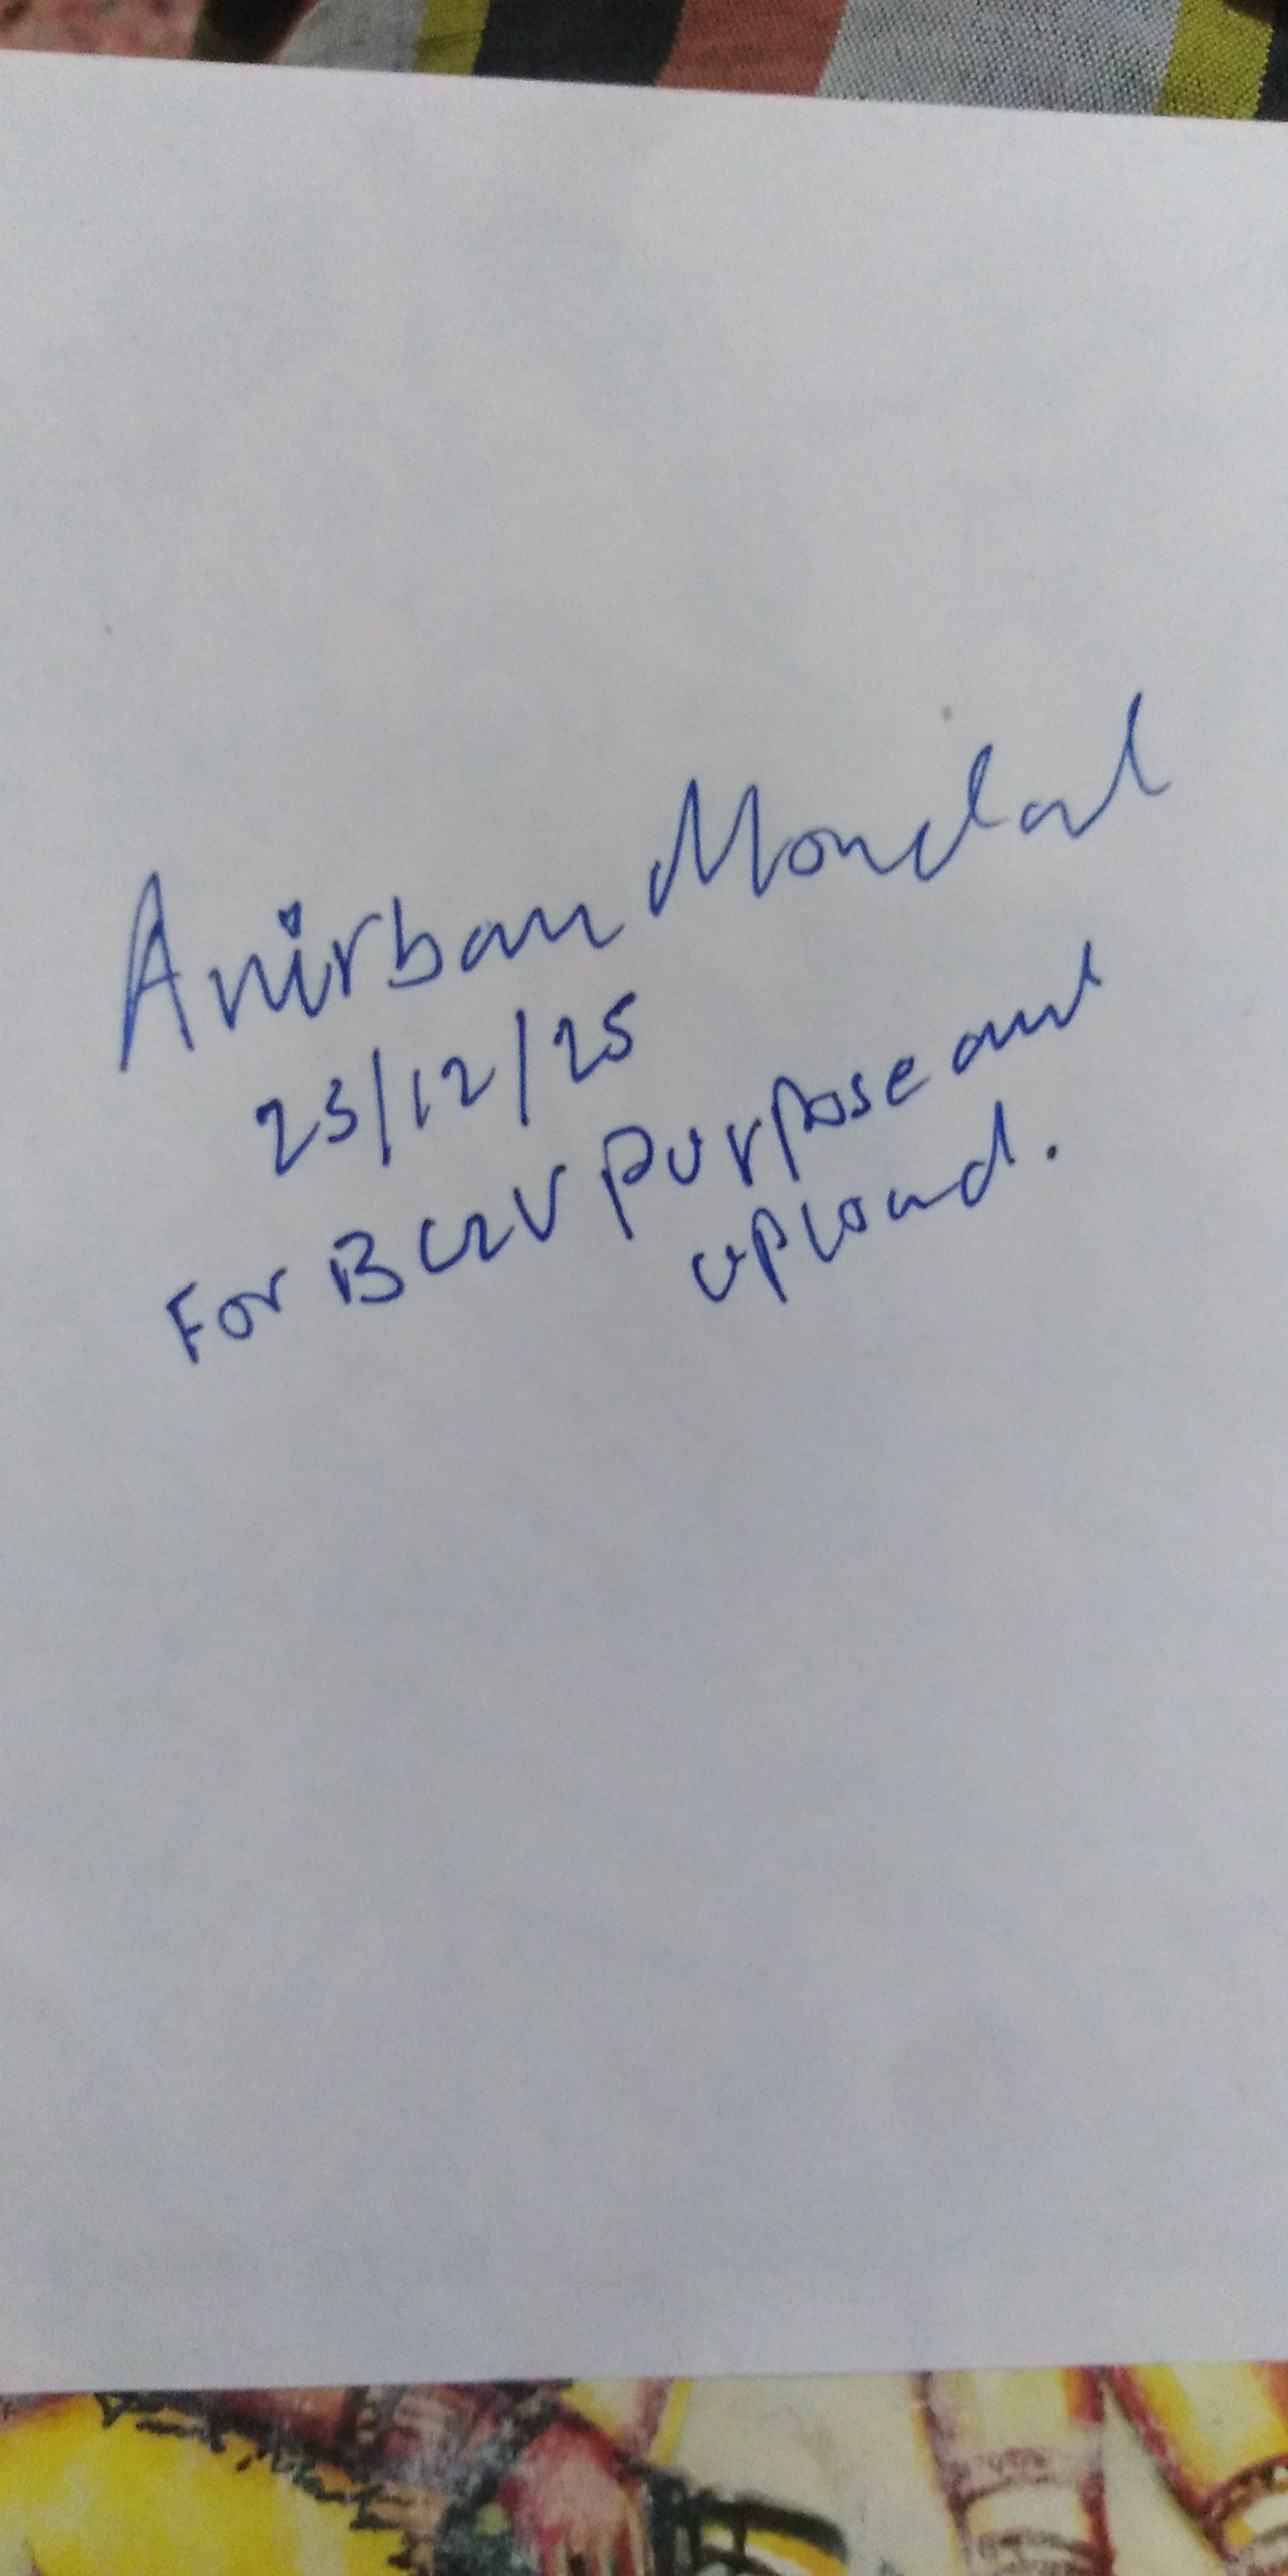 Anirban Mondal
23/12/25
For BCRV purpose and
upload.